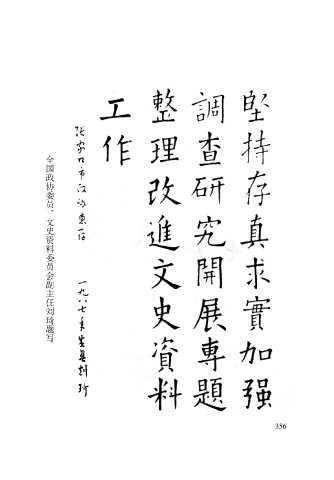 堅持存真求實加强
調查研究開展專題
整理改進文史資料
工作
张家口市政协惠存
一九八七年 刘琦
全国政协委员、文史资料委员会副主任刘琦题写
356